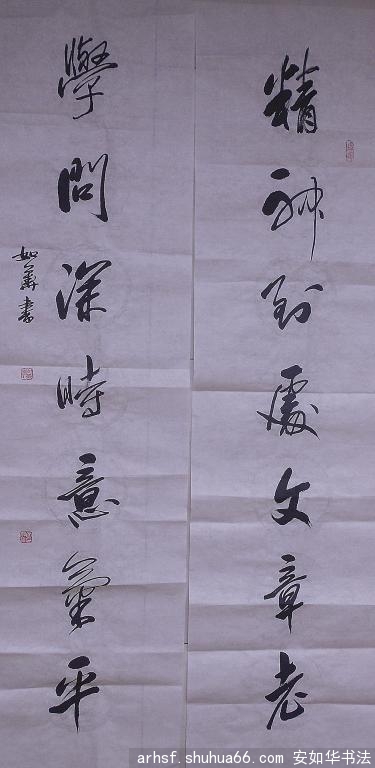 精神到處文章老
學問深時意氣平
如華書
arhsf.shuhua66.com 安如华书法